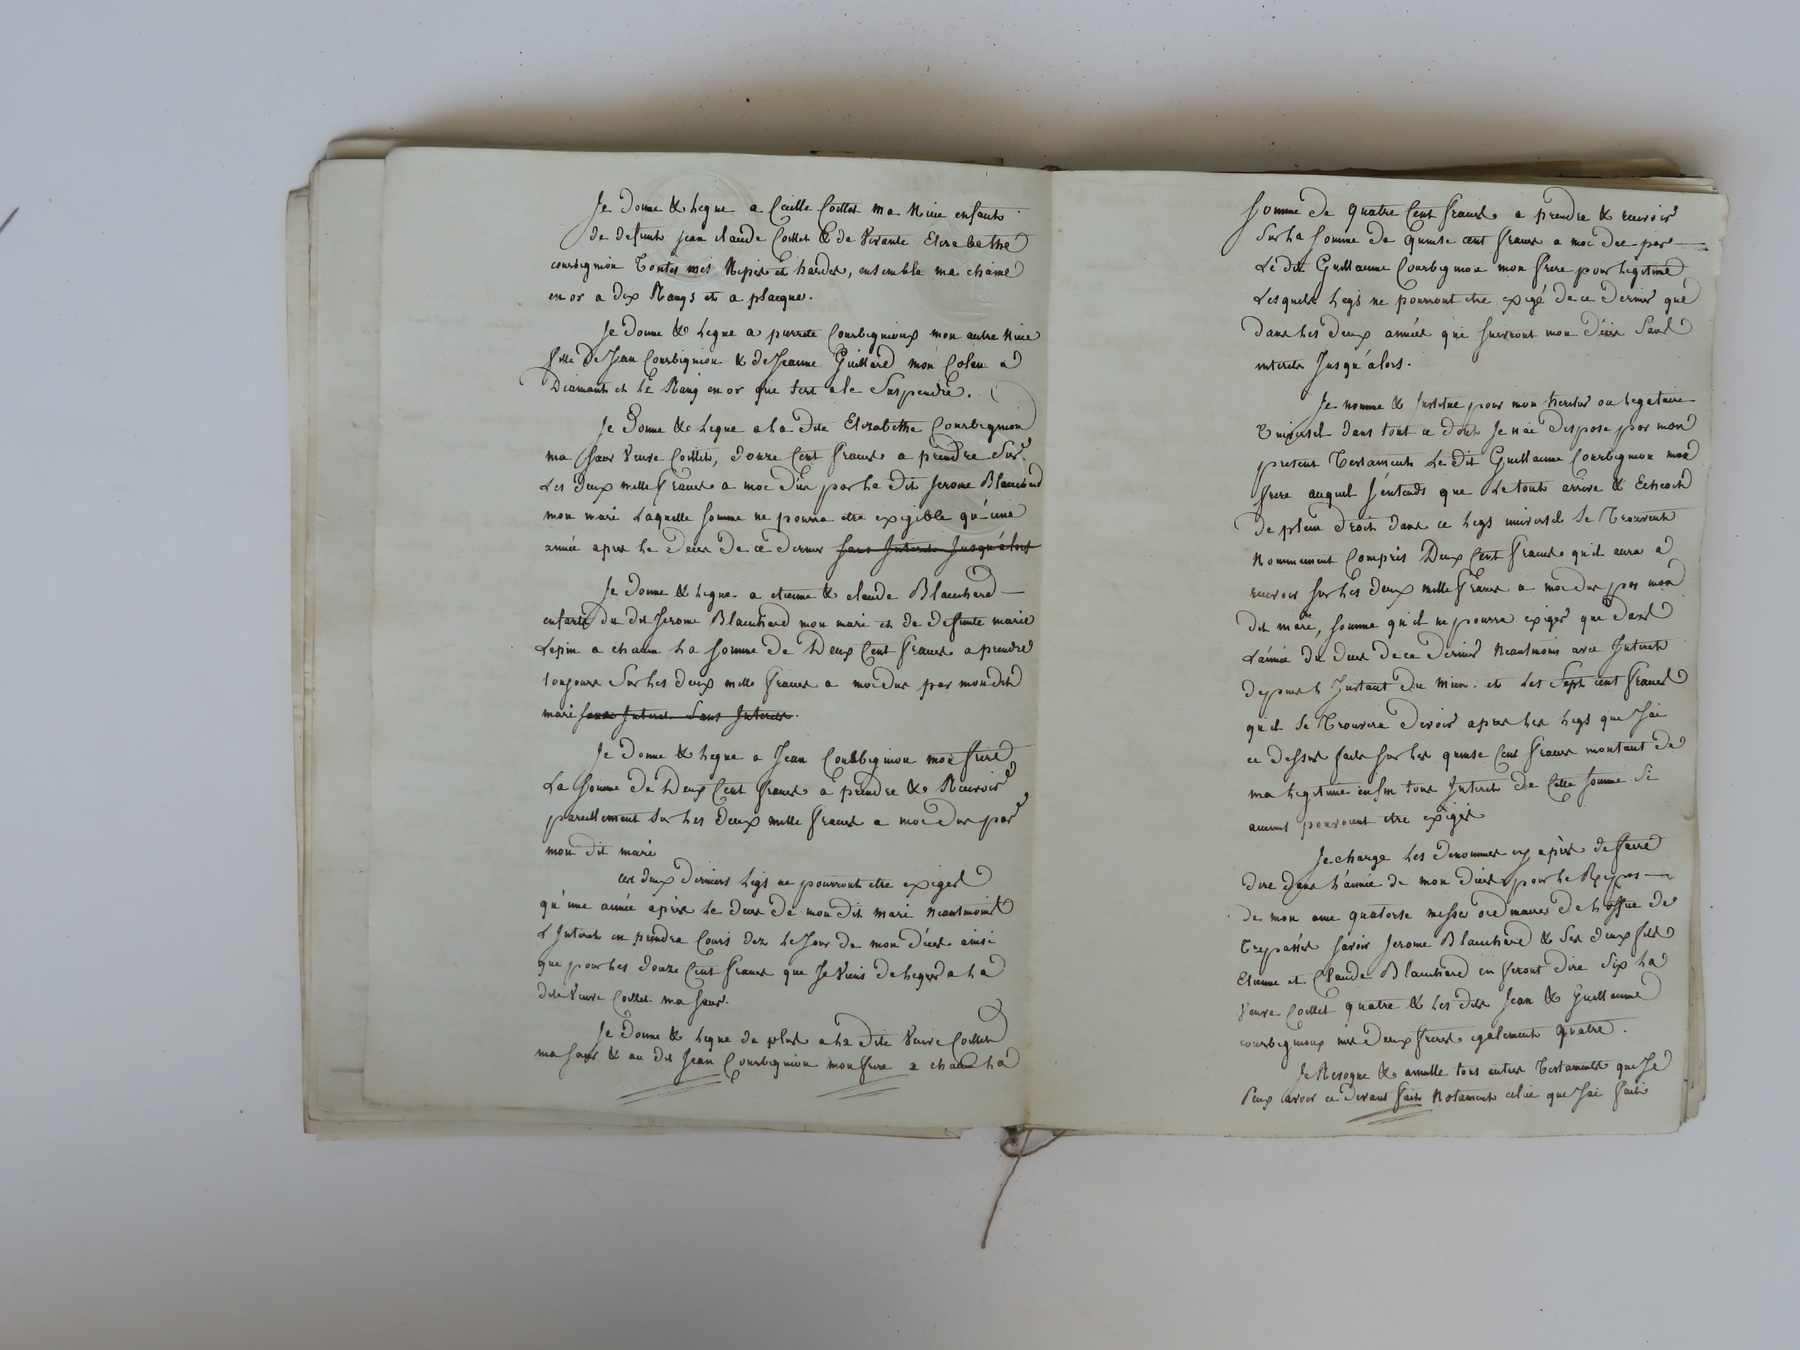 Je donne & legue a Cecille Coillet ma Niece enfante
de defunte jean claude Coillet & de Vivante Elizabethe
courbignion Toutes mes Nipes et hardes, ensemble ma chaine
en or a dix Rangs et a plaque.
Je donne & legue a pierrete Courbignioux mon autre Niece
fille De Jean Courbignion & de Jeanne Guillard mon Colan a
Diamant et le Rang en or que sert a le Suspendre.
Je Donne & legue a la dite Elizabethe Courbignion
ma soeur Veuve Coillet, douze Cent francs a prendre Sur
Les deux mille francs a moi dus par le dit Jerome Blanchard
mon mari Laquelle somme ne pourra etre exigible qu'une
année apres le deces de ce dernier sans Interets Jusqu'alors
Je donne & legue a etienne & claude Blanchard
enfants du dit Jerome Blanchard mon mari et de defunte marie
Lepin a chacun la somme de Deux Cent francs a prendre
toujours Sur les deux mille francs a moi dus par mon dit
mari sans Interet Sans Interets.
Je donne & legue a Jean Courbignion mon frere
La somme de Deux Cent francs a prendre & Recevoir
pareillement Sur les deux mille francs a moi Dus par
mon dit mari
ces deux derniers legs ne pourront etre exiges
qu'une année après le deces de mon dit mari neantmoins
L'Interet en prendra Cours dez le Jour de mon décès ainsi
que pour les douze Cent francs que Je Viens de leguer a la
dite Veuve Coillet ma soeur.
Je donne & legue de plus a la dite Veuve Coillet
ma soeur & au dit Jean Courbignion mon frere a chacun la
somme de quatre Cent francs a prendre & recevoir
Sur la somme de quinse cent francs a moi due par
Le dit Guillaume Courbignion mon frere pour legitime
Lesquels legs ne pourront etre exigé de ce dernier que
dans les deux années qui suivront mon décès Sans
interets Jusqu'alors.
Je nomme & Institue pour mon heritier ou legataire
Universel dans tout ce dont Je n'ai dispose par mon
present Testament Le dit Guillaume Courbignion mon
frere auquel J'entends que Le tout arrive & Echeoit
de plein droit dans ce legs universel Se Trouvent
Nommement Compris Deux Cent francs qu'il aura a
recevoir sur les deux mille francs a moi dus par mon
dit mari, somme qu'il ne pourra exiger que dans
L'année du deces de ce dernier Neantmoins avec Interets
depuis l'Instant du mien. et Les Sept cent francs
qu'il Se Trouvera devoir apres les legs que J'ai
ci dessus faits sur les quinse Cent francs montant de
ma legitime enfin tous Interets de Cette somme Si
aucuns pouvoient etre exigés
Je charge Les denommes cy après de faire
dire dans l'année de mon décès pour le Repos
de mon ame quatorse messes ordinaires de l'office de
Trepassés savoir Jerome Blanchard & Ses deux fils
Etienne et Claude Blanchard en feront dire Six la
Veuve Coillet quatre & les dits Jean & Guillaume
courbignioux mes Deux freres egalement quatre.
Je Revoque & annulle tous autres Testaments que Je
Peux avoir ci devant faits Notament celui que J'ai fait